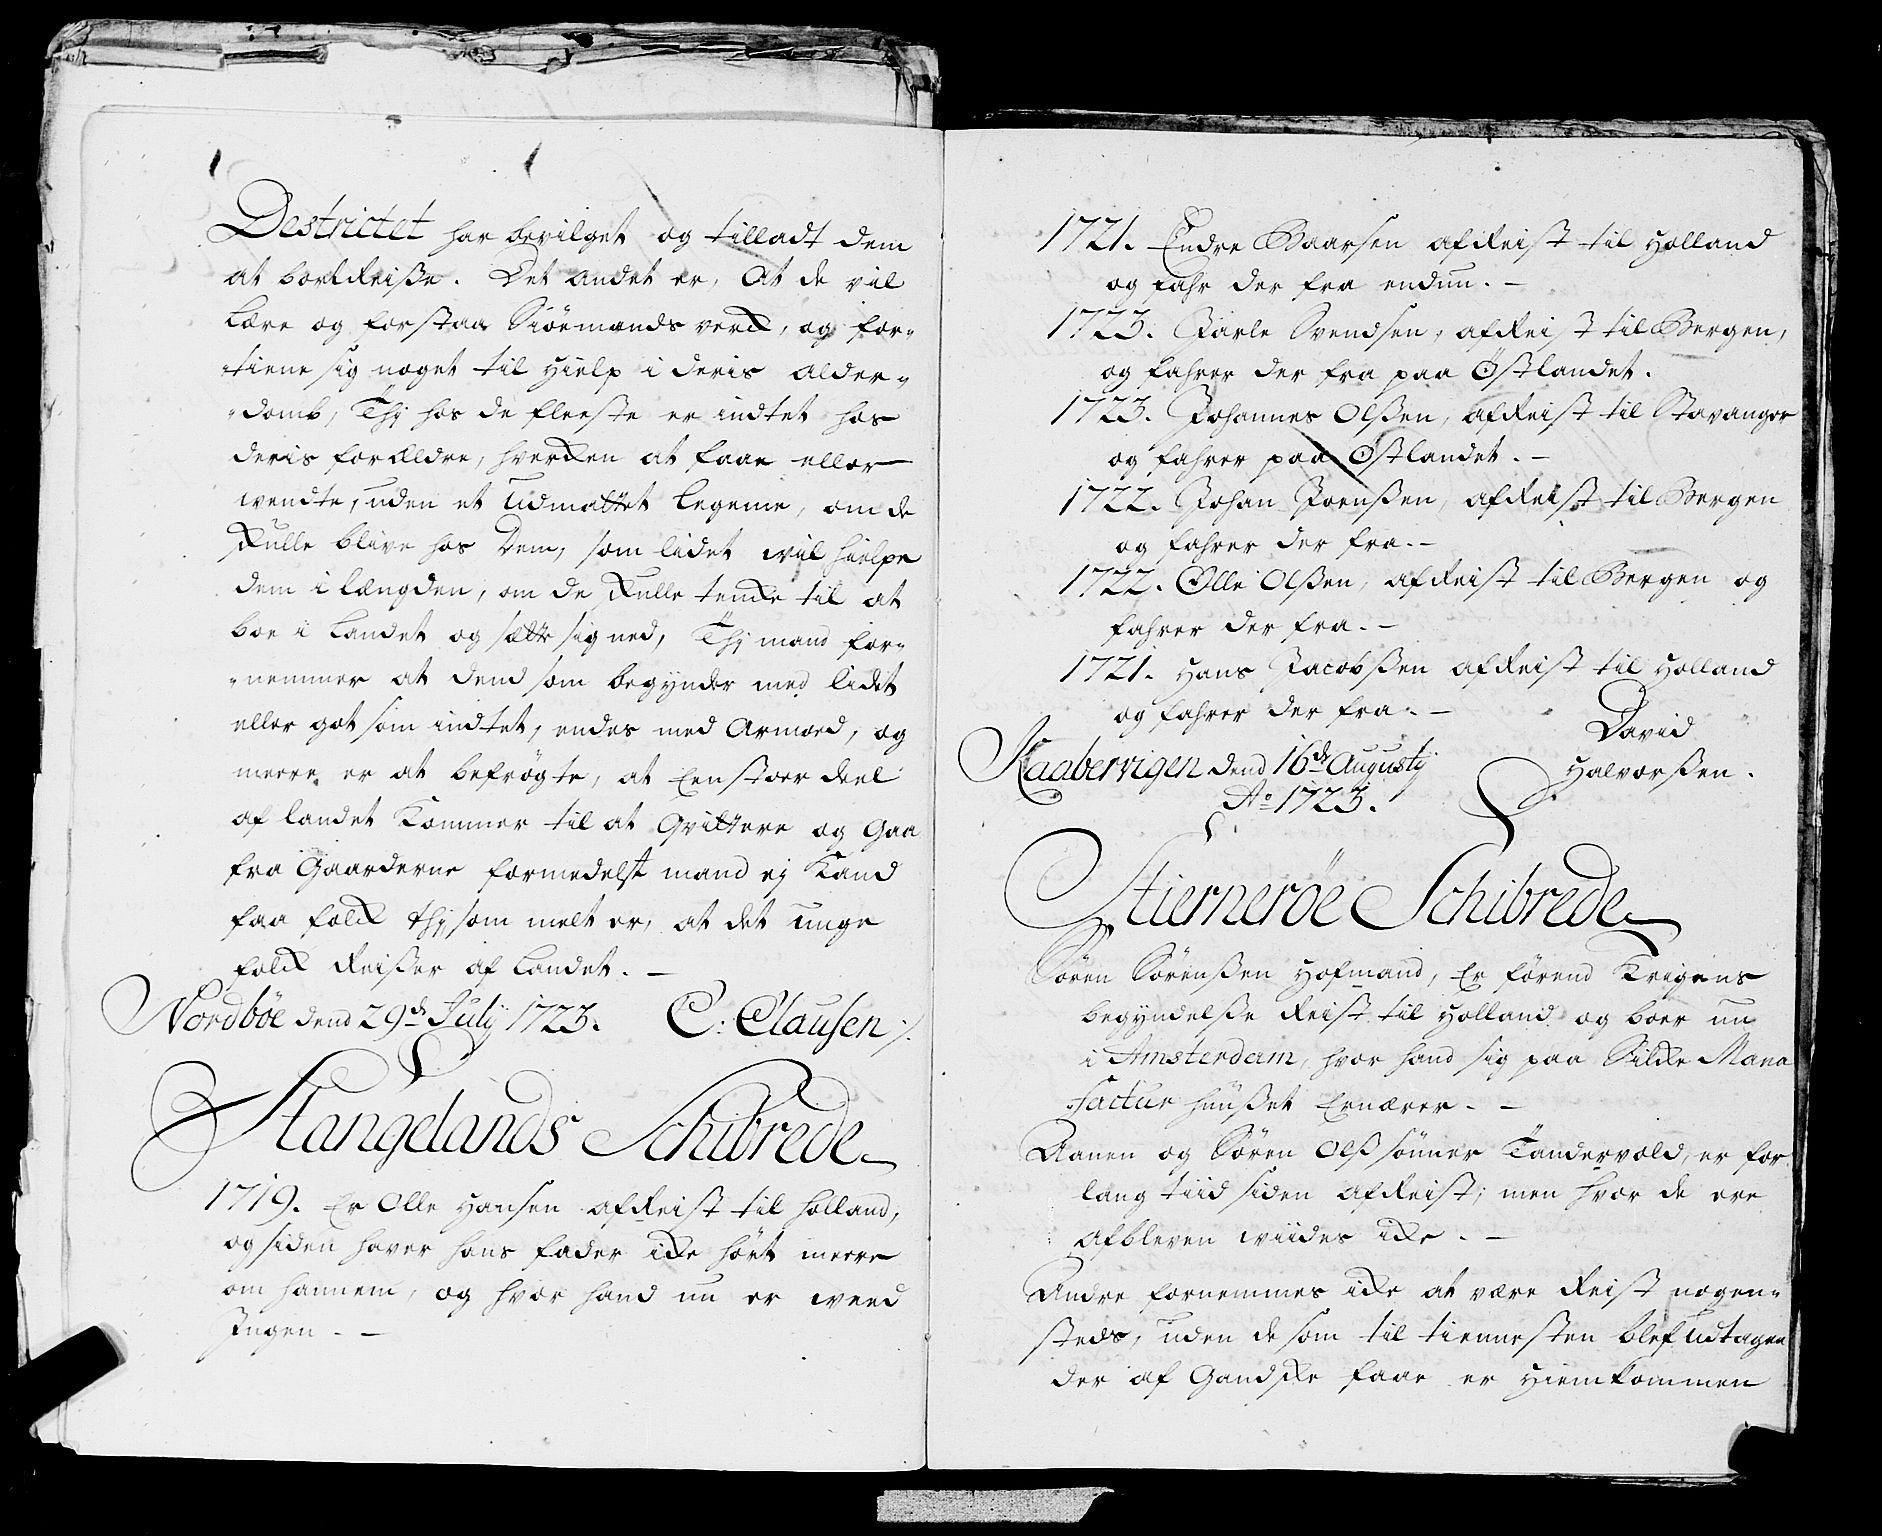 Destrictet har bevilget og tilladt dem
at bortReiße. Det andet er, At de vil
Lære og forstaa Siöemands verck, og for-
tiene sig noget til Hielp i deris alder-
-domb, Thj hos de fleeste er indtet hos
deris forældre, hvercken at faae eller
wendte, uden et Udmattet legeme, om de
skulle blive hos Dem, som lidet wil hielpe
dem i længden, om de skulle tencke til at
boe i Landet og sætte sig ned, Thj mand for-
-nemmer at dend som begynder med lidet
eller got som indtet, endes med Armoed, og
meere er at befrögte, at Een stoer deel
af landet Kommer til at Qvittere og Gaa
fra Gaarderne formedelst mand ej Kand
faa folck thj som melt er, at det unge
folck Reißer af Landet. –
Nordböe dend 29de July 1723. C: Clausen /.
Stangelands Schibrede
1719. Er Olle Hansen afReist til Holland,
og siden haver hans fader icke hört meere
om hannem, og hvor hand nu er weed
Ingen. –
1721. Endre Baarsen afReist til Holland
og fahr der fra endnu. –
1723. Jarle Svendsen, afReist til Bergen,
og fahrer der fra paa Östlandet.
1723. Johannes Olßen, afReist til Stavanger
og fahrer paa Östlandet. –
1722. Johan Joenßen, afReist til Bergen
og fahrer der fra. –
1722. Olle Olßen, afReist til Bergen og
fahrer der fra. –
1721. Hans Jacobßen afReist til Holland
og fahrer der fra. –
David
Kaabervigen dend 16de Augusty Halvorßen.
Ao 1723.
Stierneröe Schibrede
Sören Sörenßen Hofmand, Er förend Krigens
begyndelße Reist til Holland og boer nu
i Amsterdam, hvor hand sig paa Silcke Manu
factur huußet Ernærer. –
Aanen og Sören Olß sönner Tandervold, er for
lang tiid siden afReist; men hvor de ere
afbleven wiides icke. –
Andre fornemmes icke at være Reist nogen-
steds, uden de som til tiennesten blef udtagen
der af Gandske faae er Hiemkommen